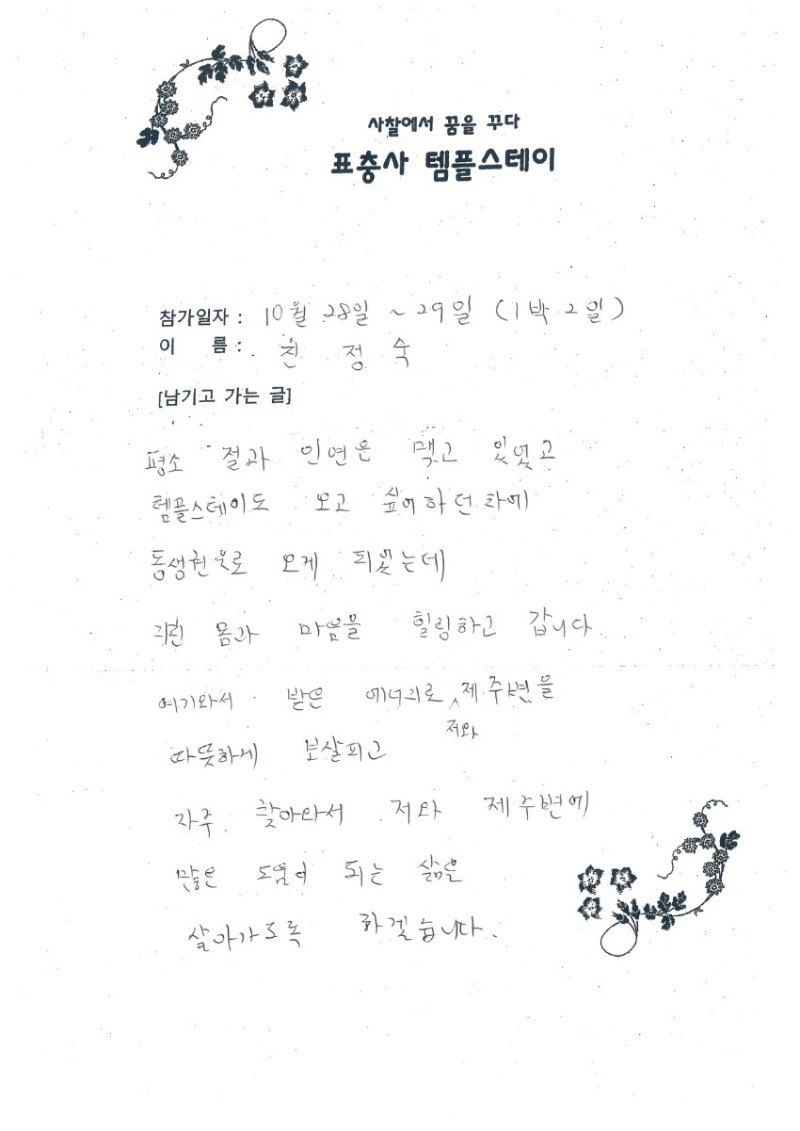 사찰에서 꿈을 꾸다
표충사 템플스테이
참가일자 : 10월 28일 ~ 29일 (1박 2일)
이 름 : 진 정 숙
[남기고 가는 글]
평소 절과 인연은 맺고 있었고
템플스테이도 오고 싶어하던 차에
동생권유로 오게 되었는데
지친 몸과 마음을 힐링하고 갑니다
여기와서 받은 에너지로 저와 제 주변을
따뜻하게 보살피고
자주 찾아와서 저와 제 주변에
많은 도움이 되는 삶은
살아가도록 하겠습니다.